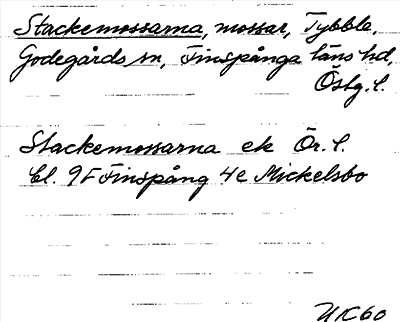 Stackemossarna, mossar, Tybble,
Godegårds sn, Finspånga läns hd,
Östg. l.
Stackemossarna ek Ör. l.
bl. 9F Finspång 4e Mickelsbo
UK60